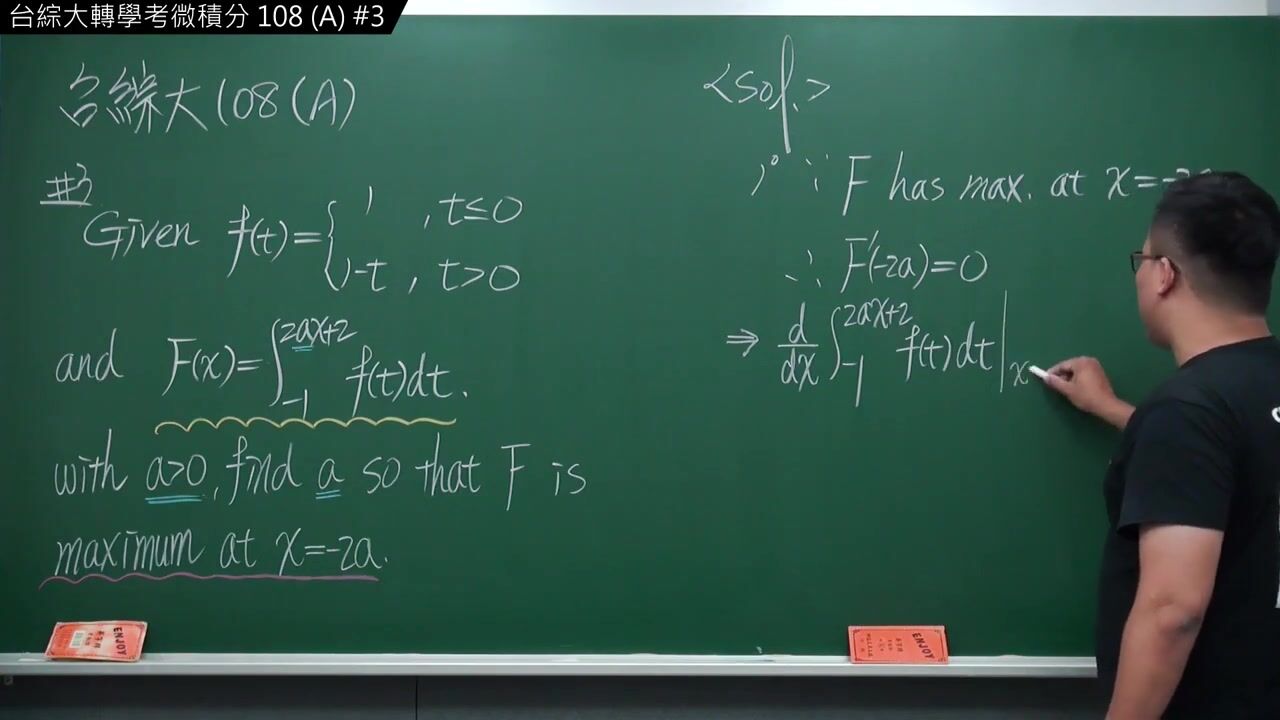 台綜大轉學考微積分 108 (A) #3
台綜大108(A)
#3
Given f(t)={ 1 , t≤0
1-t , t>0
and F(x)=∫_{-1}^{2ax+2} f(t)dt.
with a>0, find a so that F is
maximum at x=-2a.
<sol.>
1° ∵ F has max. at x=-2a
∴ F'(-2a)=0
⇒ d/dx ∫_{-1}^{2ax+2} f(t)dt|_{x
ENJOY
ENJOY